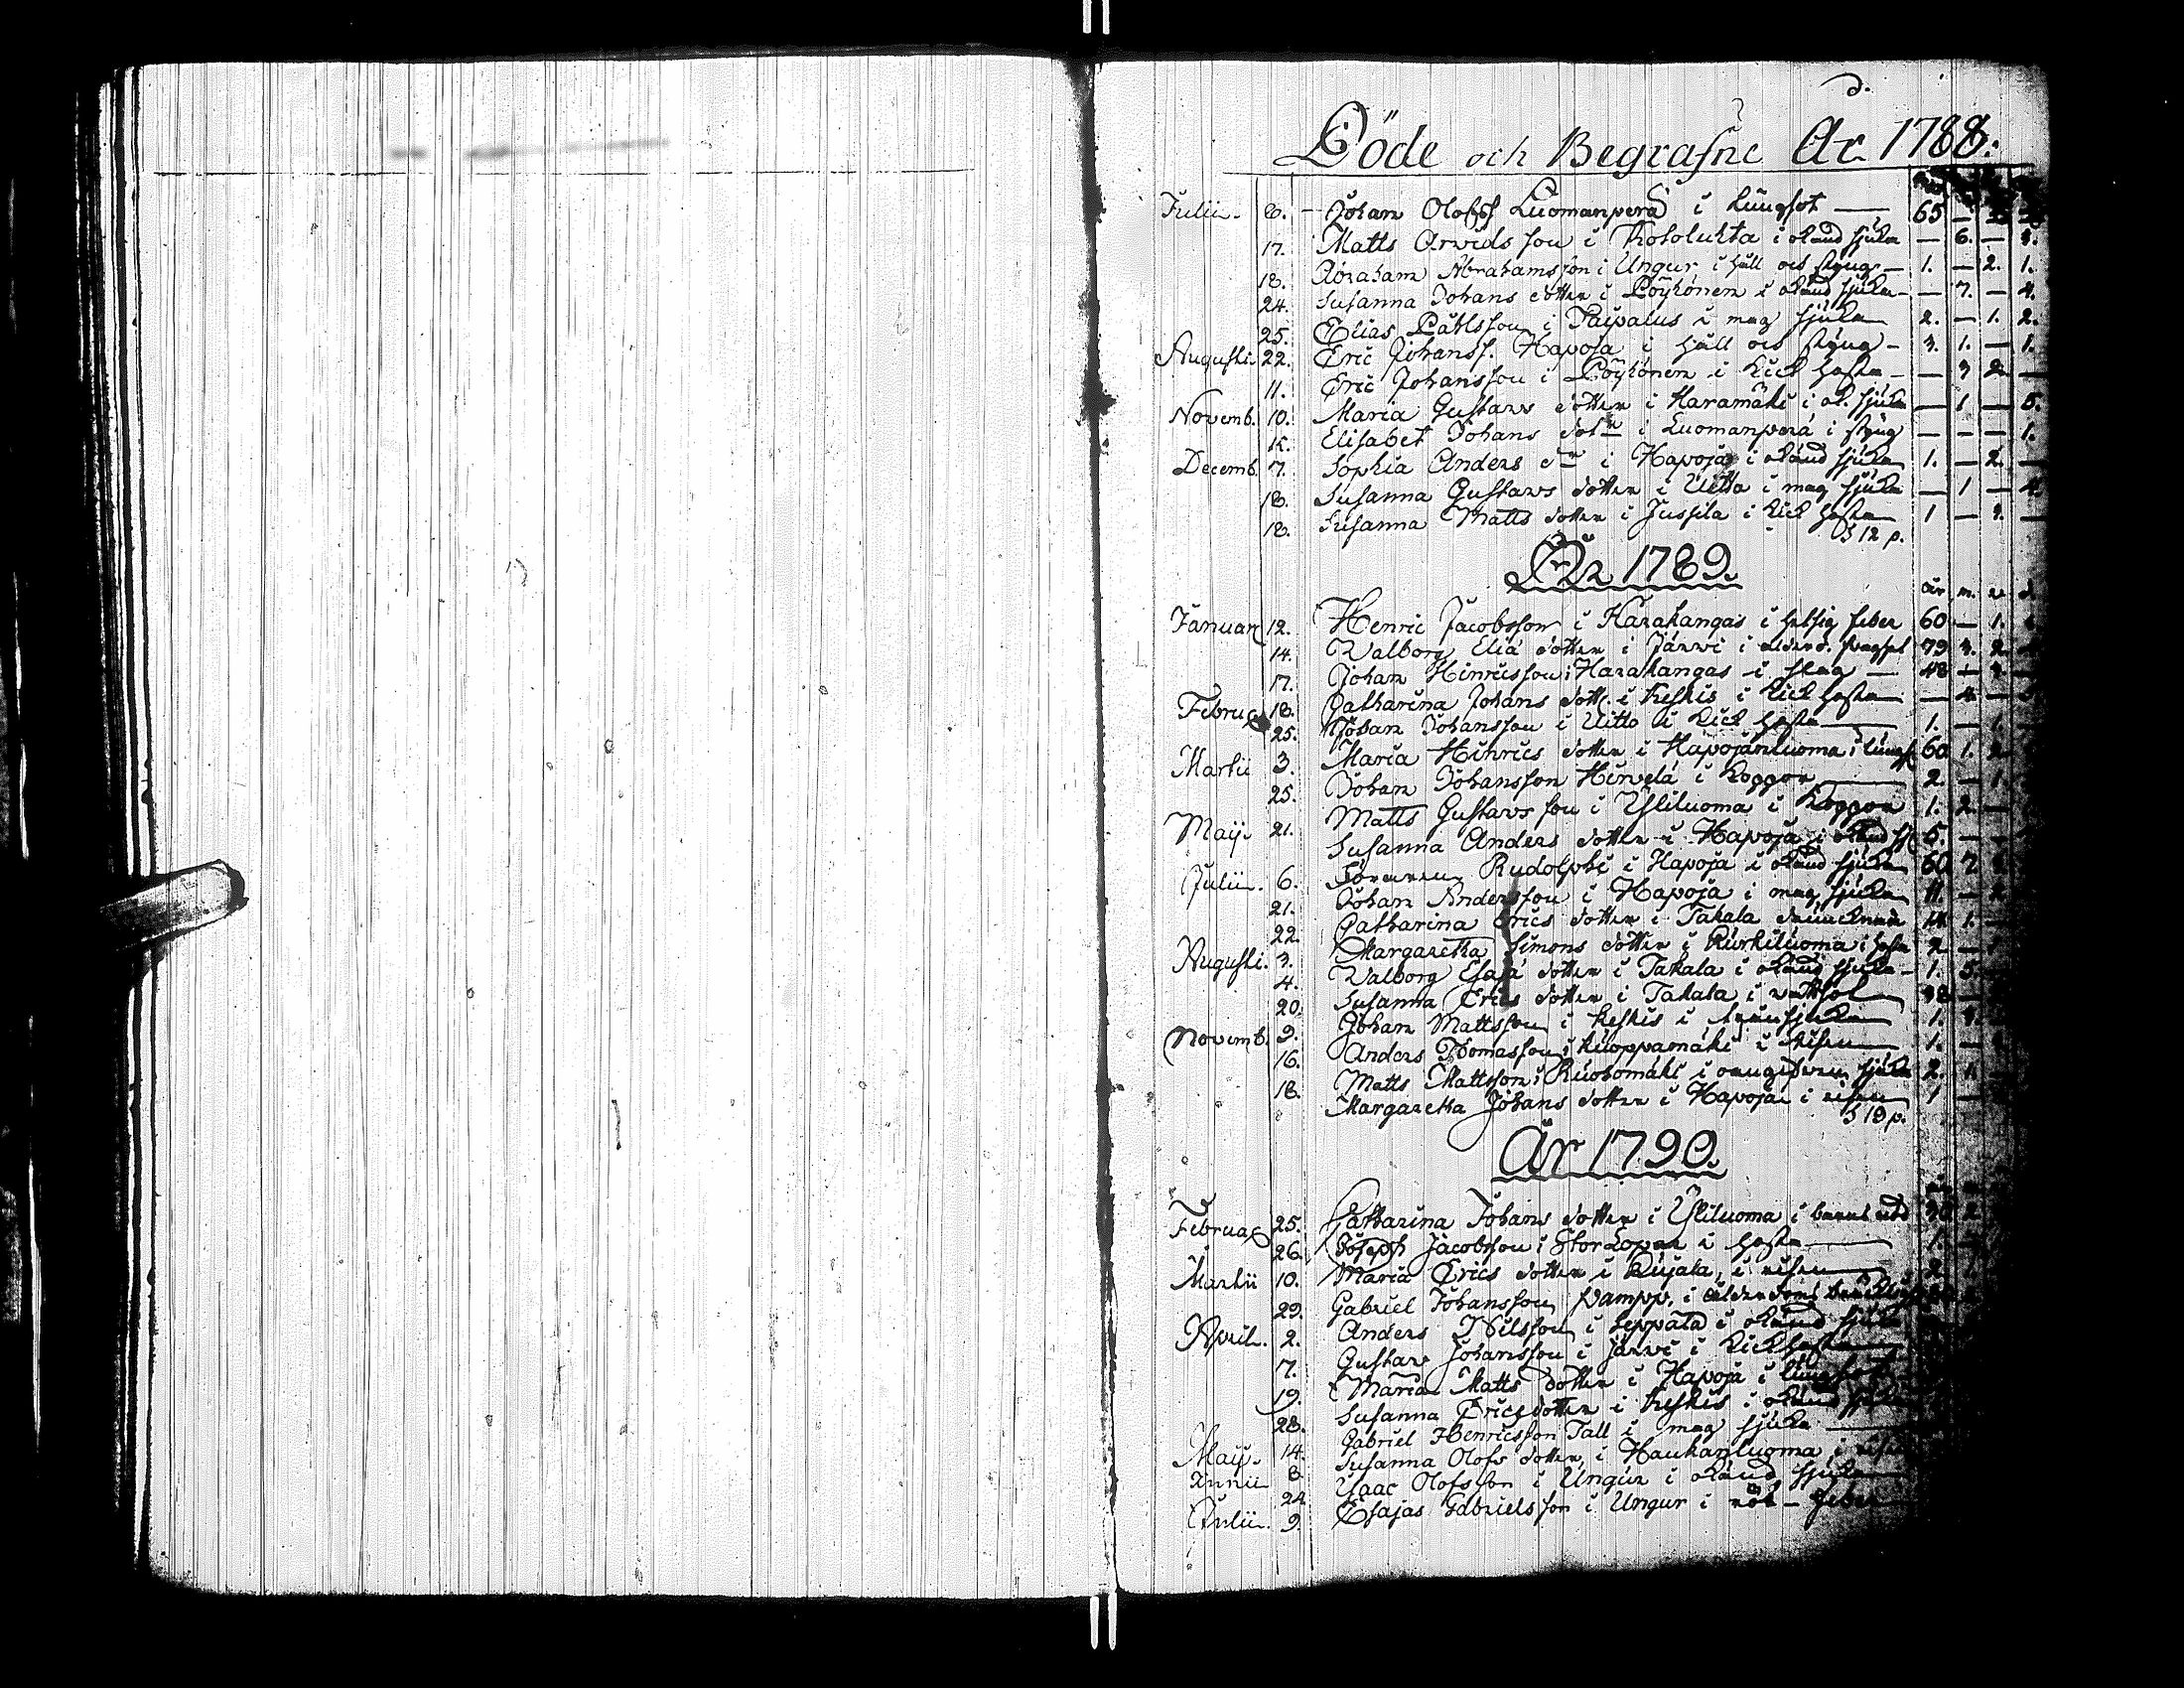 d.
Döde och Begrafne År 1788.
Julii. 8. Johan Olofss Luomanperä i Lungsot — 65 —
17. Matts Arvidsson i Kotoluhta i okänd sjuka — 6. — 3.
18. Abraham Abrahamsson i Ungur i håll och styng — 1. — 2. 1.
24. Susanna Johans dotter i Löyhönen i okänd sjuka — 7. — 4.
25. Elias Påhlsson i Paipalus i mag sjuka 2. — 1. 2.
Augusti 22. Eric Johanss. Hapoja i håll och styng — 3. 1. — 1.
11. Eric Johansson i Löyhönen i Kick hosta — — 3 2. —
Novemb. 10. Maria Gustavs dotter i Haramäki i ok. sjuka — 1 — 5.
15. Elisabet Johans dotr i Luomanperä i styng — — — 1.
Decemb. 7. Sophia Anders dr i Hapoja i okänd sjuka 1. — 2. —
18. Susanna Gustavs dotter i Uitto i mag sjuka — 1 — 4
18. Susanna Matts dotter i Jussila i Kick hosta 1 — 3. —
S 12 p.
År 1789.
år m. v. d.
Januar 12. Henric Jacobsson i Harakangas i hetsig feber 60 — 1.
14. Walborg Elia dotter i Järvi i ålderd. 79 3. 2
17. Johan Hinricsson i Harakangas i slag — 48 — 3.
Februar 18. Catharina Johans dott. i Keskis i Kick hosta — 4 —
25. Johan Johansson i Uitto i Kick hosta 1. — 1.
Martii 3. Maria Hinrics dotter i Hapojanluoma i lungs 60 1. 2
25. Johan Johansson Hirvelä i Koppor 2 — 1.
Maij 21. Matts Gustavsson i Yliluoma i Koppor 1. 2 —
Susanna Anders dotter i Hapoja i okänd sj 5. —
Julii. 6. Rudolphi i Hapoja i okänd sjuka 60 7
21. Johan Andersson i Hapoja i mag sjuka 11 — 2
22. Catharina Erics dotter i Takala 14 1.
Augusti. 3. Margaretha Simons dotter i Kurkiluoma i hosta 2 —
4. Walborg Esaiä dotter i Takala i okänd sjuka — 1. 5
20. Susanna Erics dotter i Takala i 38 —
Novemb. 9. Johan Mattsson i Keskis i 1. 3.
16. Anders Thomasson i Kuoppamäki i risen 1. —
18. Matts Mattsson i Ruohomäki i sjuka 2.
Margaretha Johans dotter i Hapoja i risen 1
S 19 p.
År 1790.
Februar 25. Catharina Johans dotter i Yliluoma i 30 2
26. Joseph Jacobsson i Stor Lopar i hosta 1.
Martii 10. Maria Erics dotter i Kujala, i risen 2
29. Gabriel Johansson i ålderdoms
April. 2. Anders Nilsson i Seppälä i okänd sjuka
7. Gustav Johansson i Järvi i Kick hosta
19. Maria Matts dotter i Hapoja i lungsot
28. Susanna Erics dotter i Keskis i okänd sjuka
Gabriel Henricsson Tall i mag sjuka
Maij. 14. Susanna Olofs dotter, i Haukanluoma i risen
Junii 8 Isaac Olofsson i Ungur i okänd sjuka
24
Julii. 9. Esajas Gabrielsson i Ungur i röt-feber